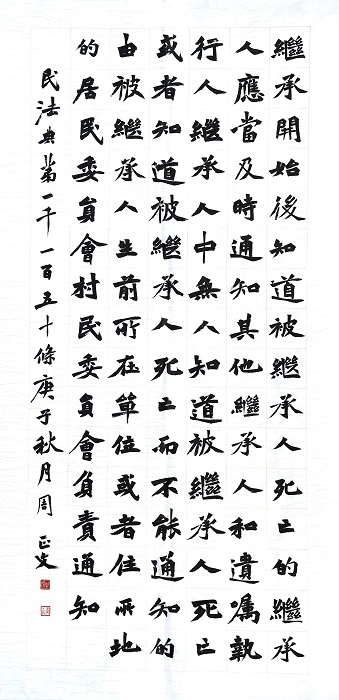 繼承開始後知道被繼承人死亡的繼承
人應當及時通知其他繼承人和遺囑執
行人繼承人中無人知道被繼承人死亡
或者知道被繼承人死亡而不能通知的
由被繼承人生前所在單位或者住所地
的居民委員會村民委員會負責通知
民法典第一千一百五十條庚子秋月周正文